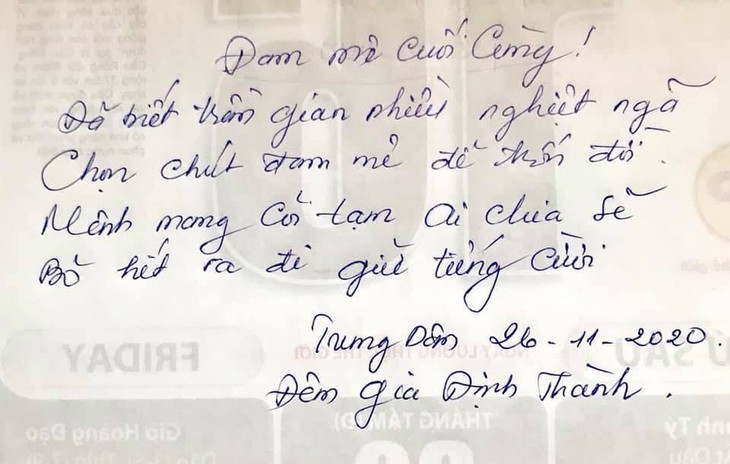 Đam mê cuối Cùng!
Đã biết trần gian nhiều nghiệt ngã
Chọn chút đam mê để trốn đời.
Mênh mang Cõi tạm ai chia sẽ
Bỏ hết ra đi giữ tiếng Cười
Trung Dân 26-11-2020.
Đêm Gia Định Thành.
FRIDAY
THÁNG TÁM (Đ)
Giờ Hoàng Đạo